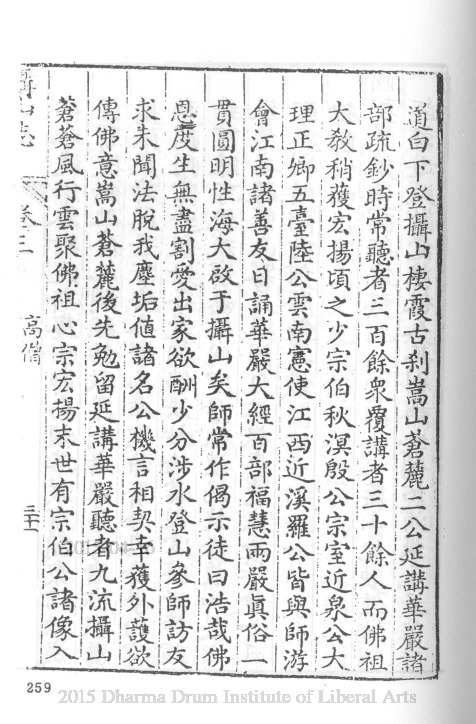 道白下登攝山棲霞古刹嵩山蒼麓二公延講華嚴諸
部疏鈔時常聽者三百餘衆覆講者三十餘人而佛祖
大教稍獲宏揚頃之少宗伯秋溟殷公宗室近泉公大
理正卿五臺陸公雲南憲使江西近溪羅公皆與師游
會江南諸善友日誦華嚴大經百部福慧兩嚴眞俗一
貫圓明性海大啟于攝山矣師常作偈示徒曰浩哉佛
恩度生無盡割愛出家欲酬少分涉水登山參師訪友
求未聞法脫我塵垢値諸名公機言相契幸獲外護欲
傳佛意嵩山蒼麓後先勉留延講華嚴聽者九流攝山
蒼蒼風行雲聚佛祖心宗宏揚末世有宗伯公諸像入
山志 卷三 高僧 三十
259
2015 Dharma Drum Institute of Liberal Arts